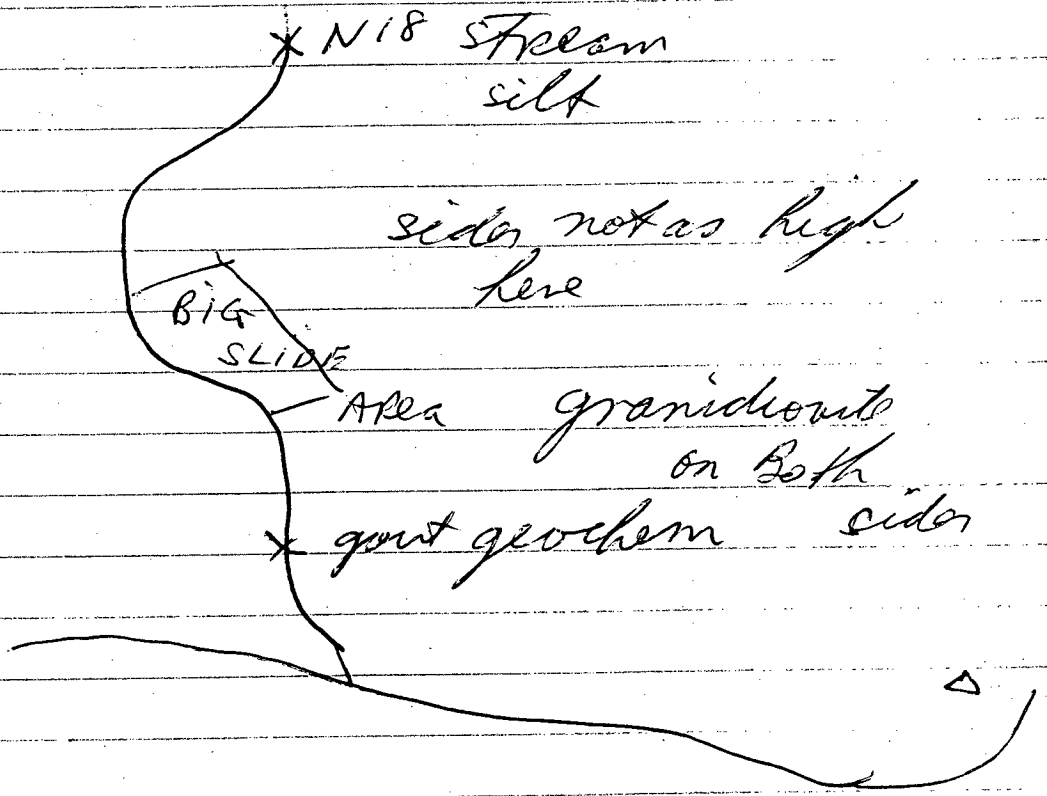 X N18 stream
silt
sides not as high
here
BIG
SLIDE
AREA
granidiorite
on Both
sides
X govt geochem